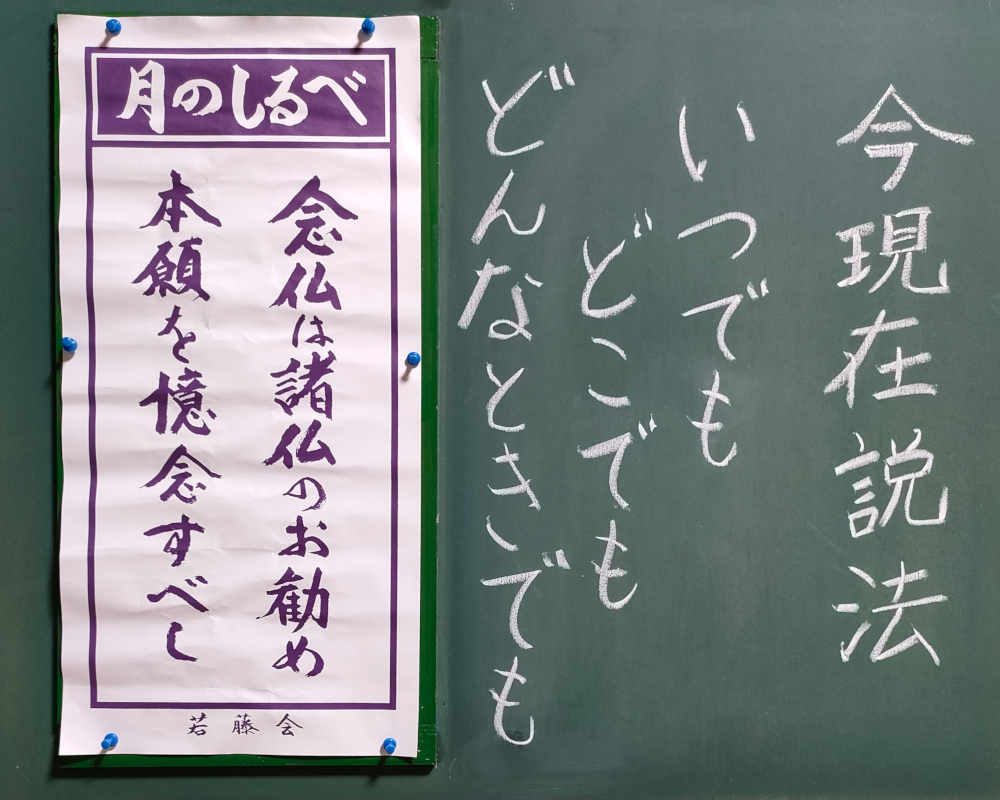 今現在説法
いつでも
どこでも
どんなときでも
月のしるべ
念仏は諸仏のお勧め
本願を憶念すべし
若藤会